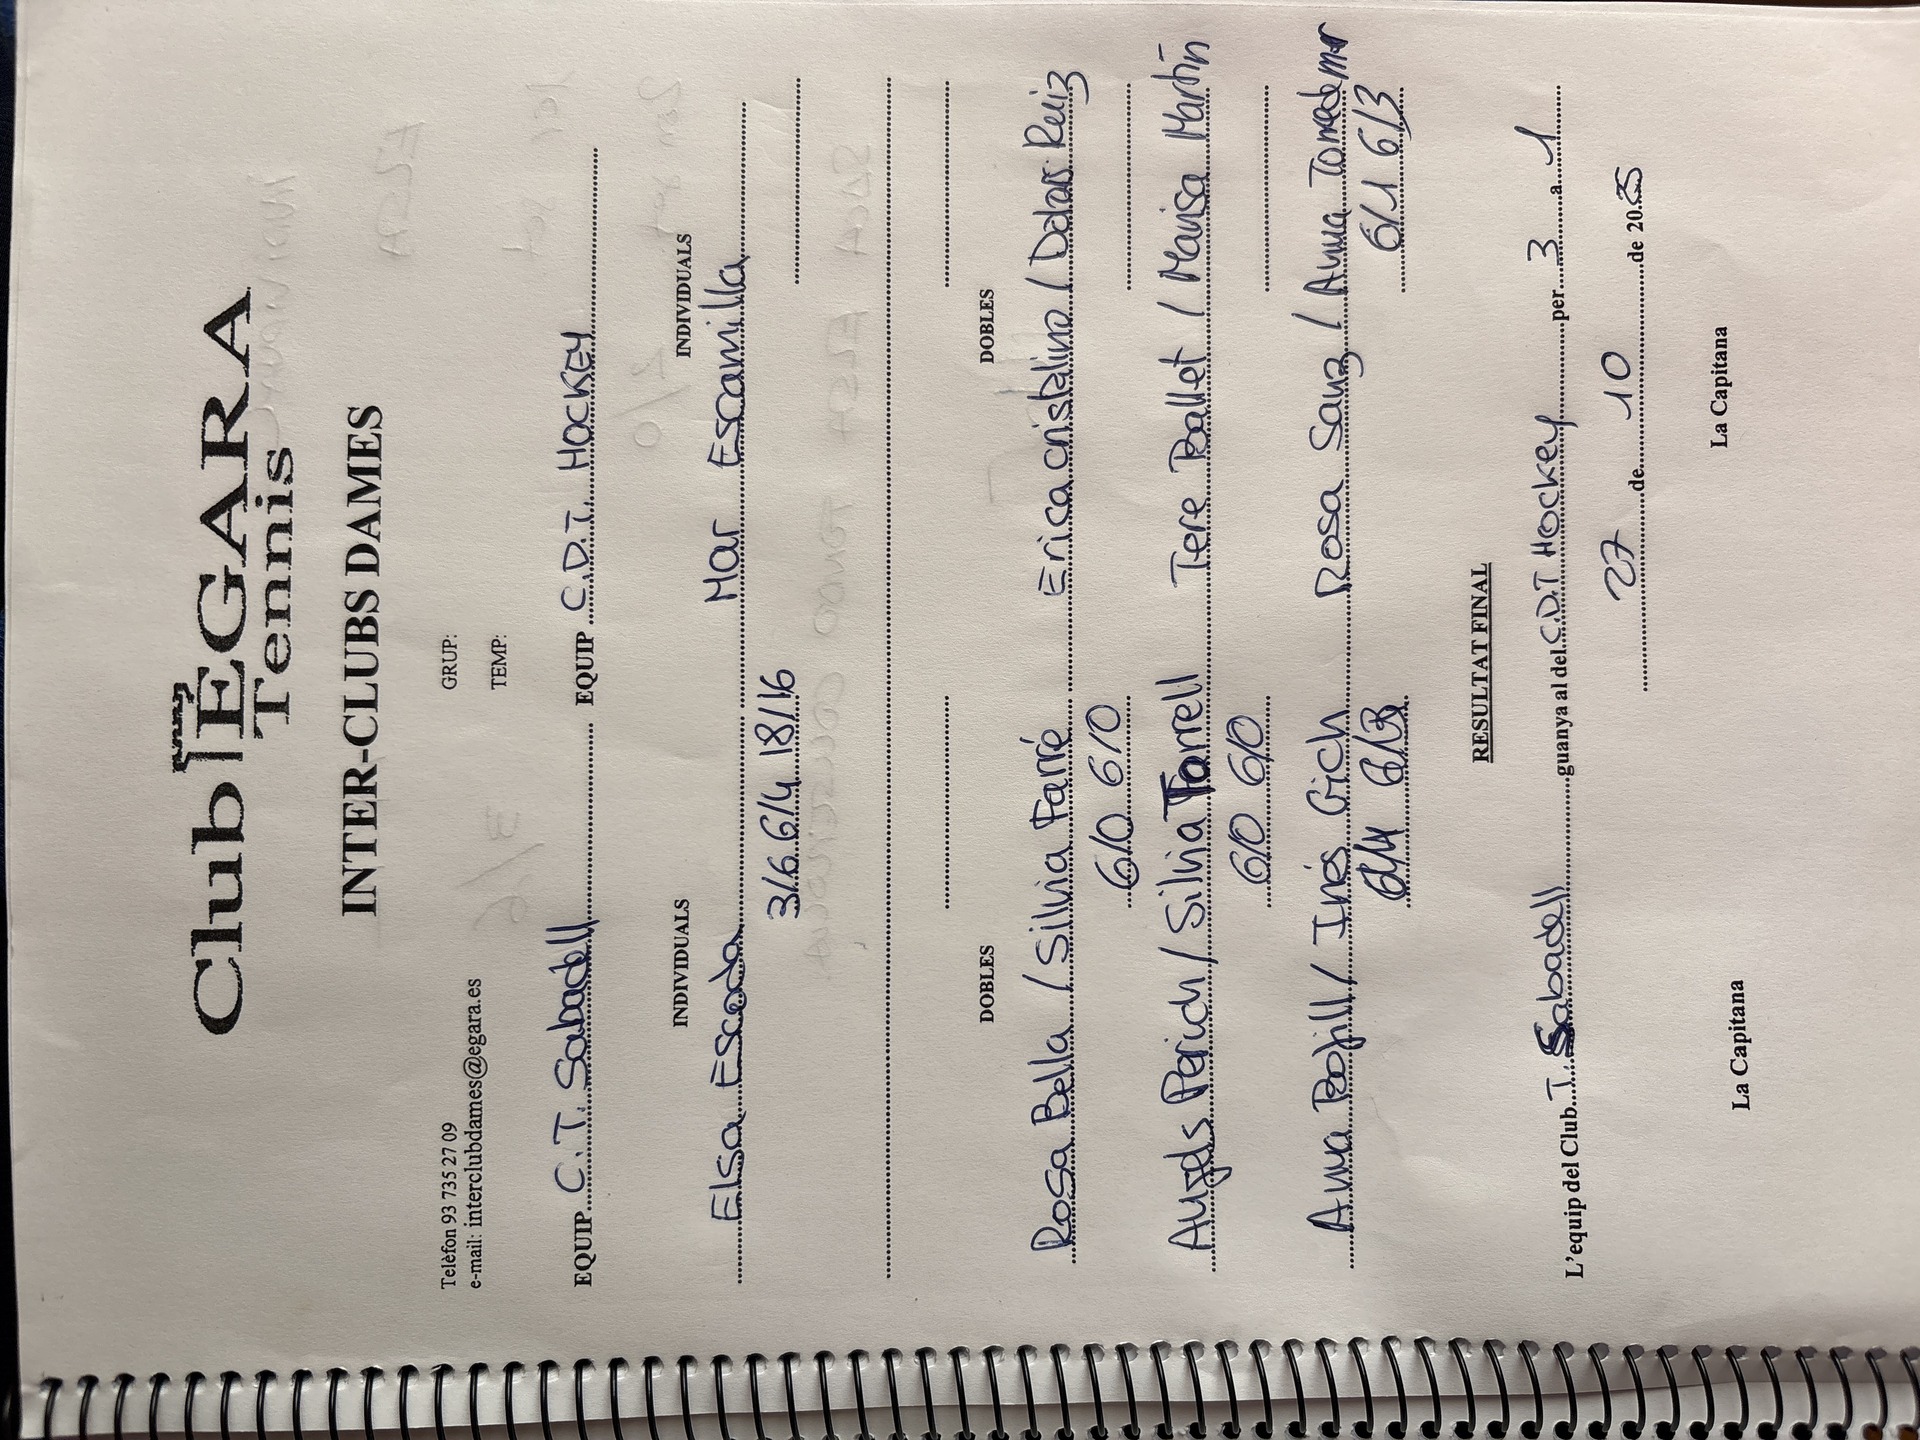 Club EGARA
Tennis
INTER-CLUBS DAMES
Telèfon 93 735 27 09 GRUP:
e-mail: interclubdames@egara.es TEMP:
EQUIP C.T. Sabadell EQUIP C.D.T. HOCKEY
INDIVIDUALS INDIVIDUALS
Elsa Escoda Mar Escamilla
3/6 6/4 18/16
DOBLES DOBLES
Rosa Bella / Silvia Farré Erica cristalino / Dolors Ruiz
6/0 6/0
Angels Perich / Silvia Torrell Tere Ballet / Marisa Martín
6/0 6/0
Anna Bofill / Inés Grich Rosa Sanz / Anna
6/1 6/3
RESULTAT FINAL
L'equip del Club T. Sabadell guanya al del C.D.T Hockey per 3 a 1
27 de 10 de 2025
La Capitana La Capitana